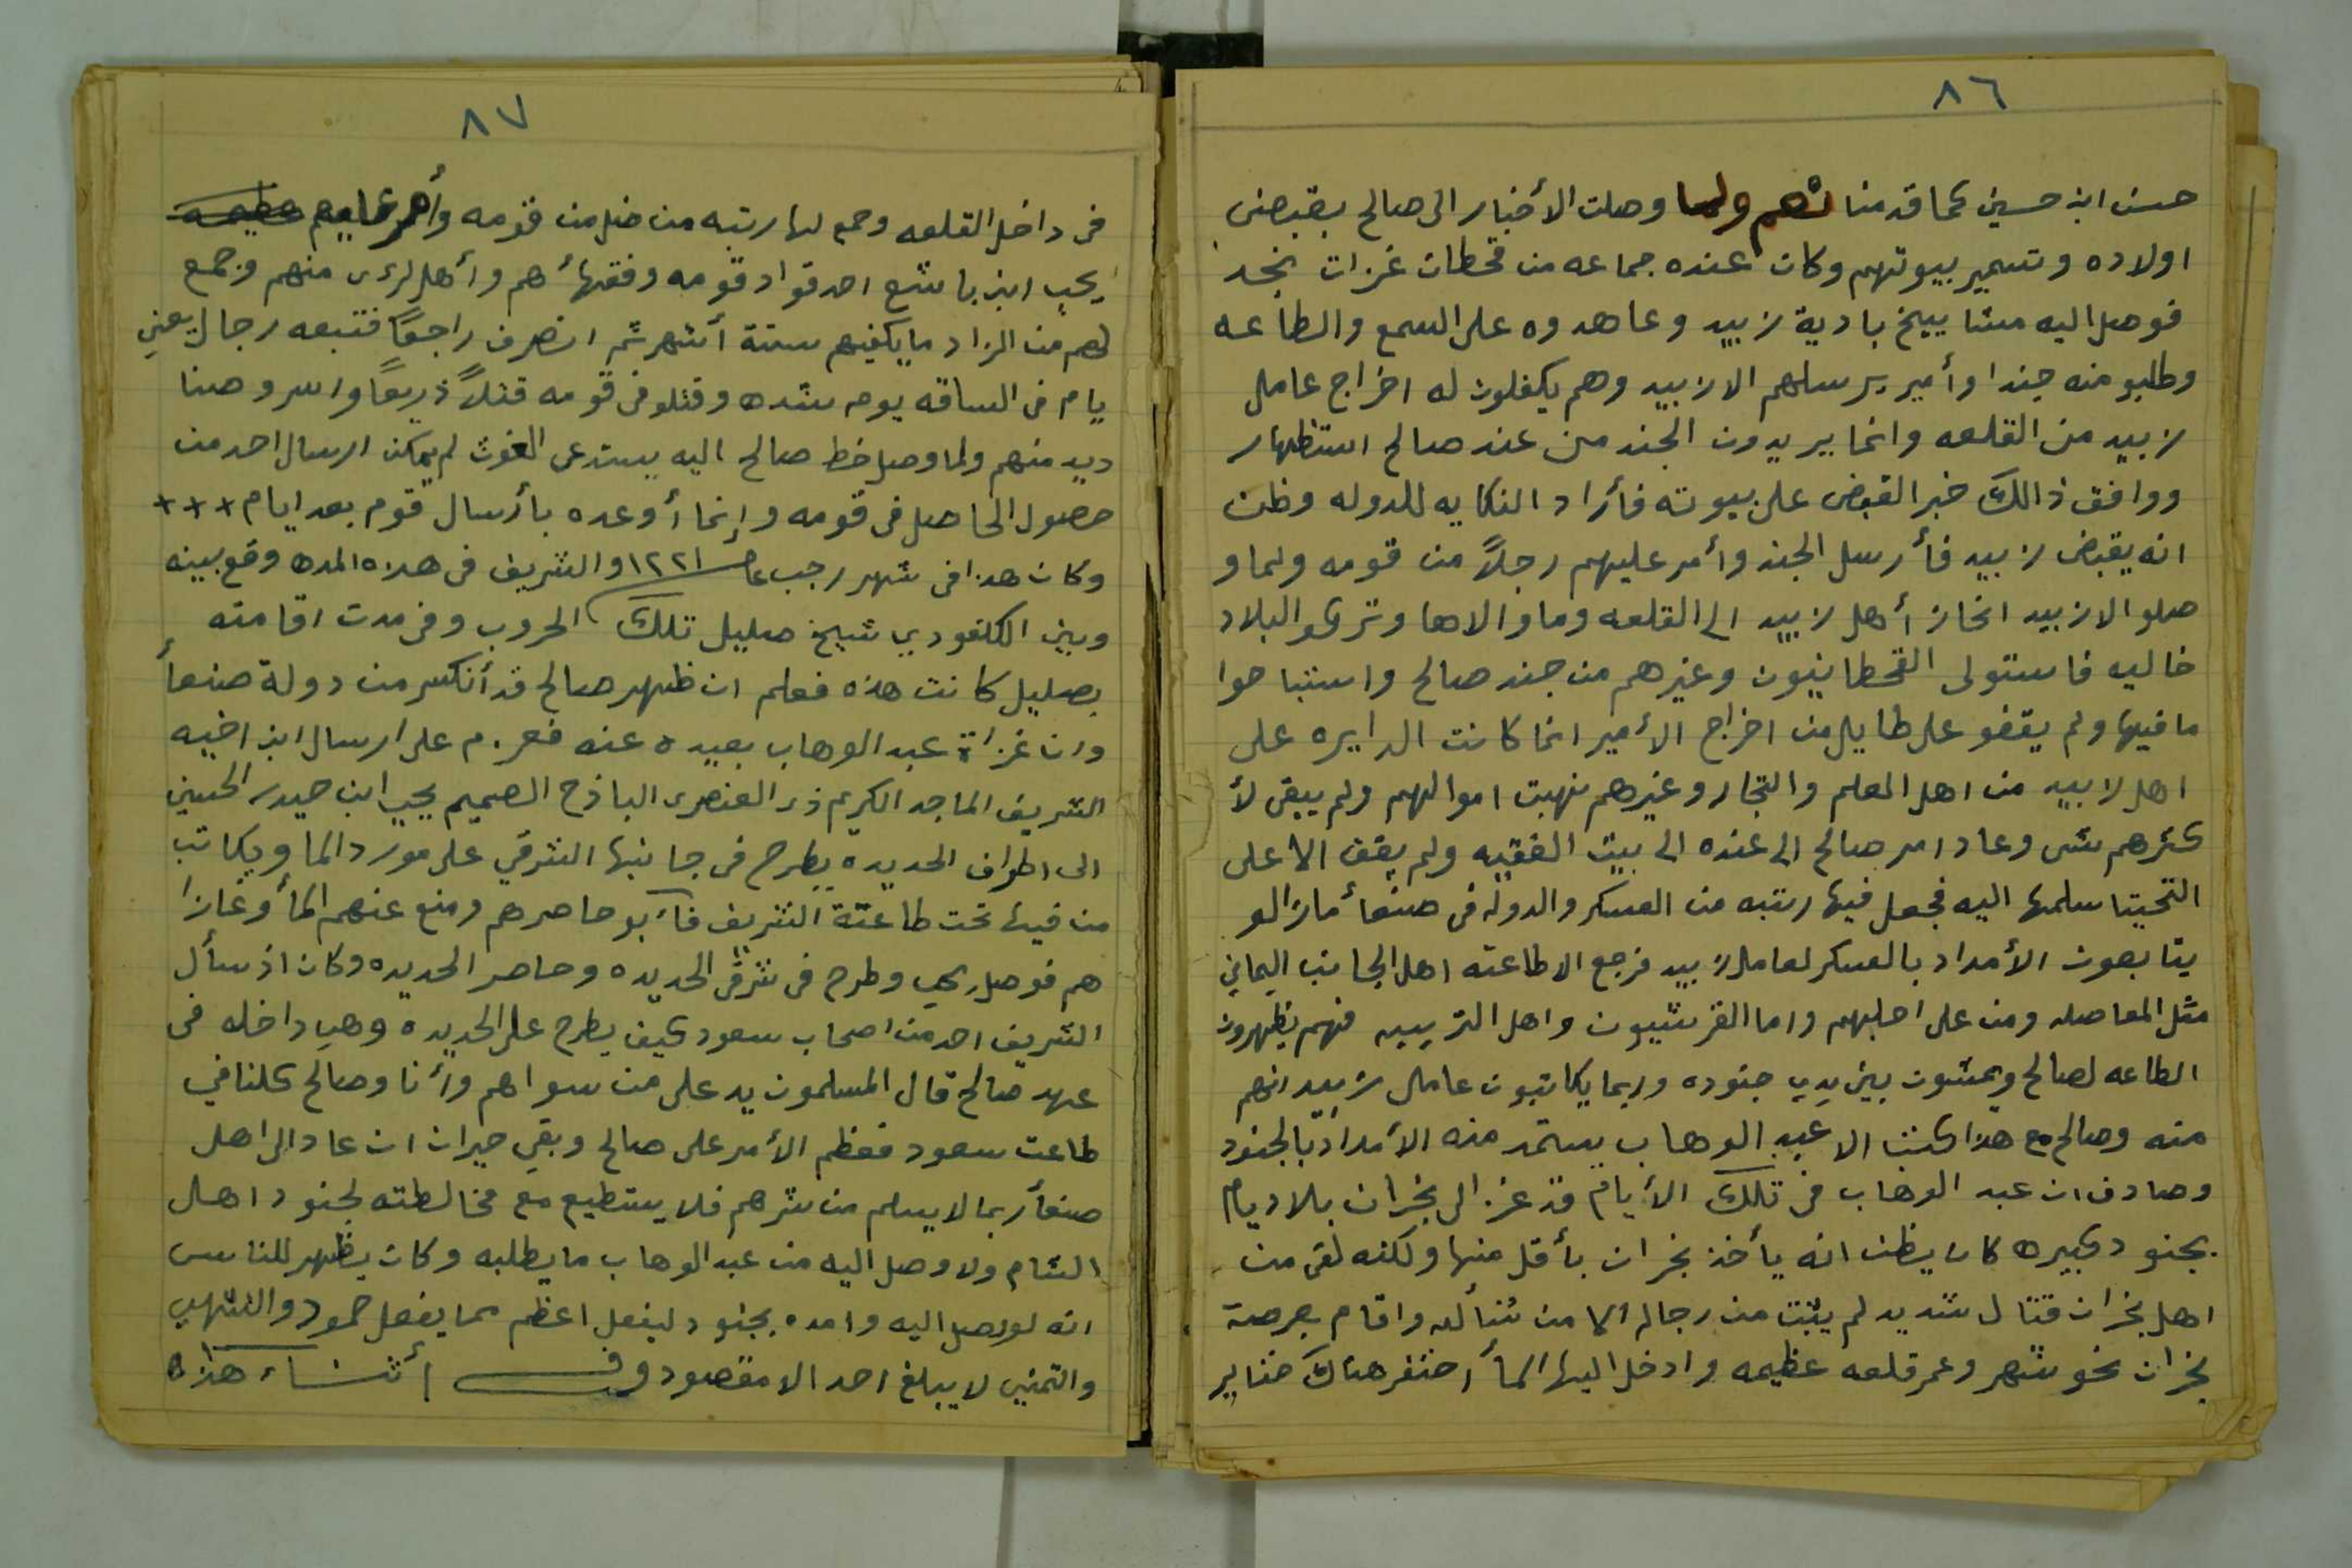 ٨٦
حسن ابن حسين كما قدمنا ولما وصلت الأخبار الى صالح بقبض
اولاده وتسمير بيوتهم وكان عنده جماعه من قحطان غزات نجد
فوصل اليه مشاييخ بادية زبيد وعاهدوه على السمع والطاعه
وطلبو منه جندا وأمير يرسلهم الا زبيد وهم يكفلون له اخراج عامل
زبيد من القلعه وانما يريدون الجند من عند صالح استظهار
ووافق ذالك خبر القبض على بيوته فأراد النكايه للدوله وظن
انه يقبض زبيد فأرسل الجند وأمر عليهم رجلاً من قومه ولما و
صلو الا زبيد انحاز أهل زبيد الى القلعه وما والاها وتركو البلاد
خاليه فاستولى القحطانيون وغيرهم من جند صالح واستباحوا
ما فيها ولم يقفو على طايل من اخراج الأمير انما كانت الدايره على
اهل زبيد من اهل العلم والتجار وغيرهم نهبت اموالهم ولم يبقى لأ
كثرهم شى وعاد امر صالح الى عنده الى بيت الفقيه ولم يقف الا على
التحيتا سلمها اليه فجعل فيها رتبه من العسكر والدوله فى صنعأ مازالو
يتابعون الأمداد بالعسكر لعامل زبيد فرجع الا طاعته اهل الجانب اليماني
مثل المعاصله ومن على اجلبهم واما القرشييون واهل التريبه فهم يظهرون
الطاعه لصالح ويمشون بين يدي جنوده وربما يكاتبون عامل زبيد انهم
منه وصالح مع هذا كتب الا عبد الوهاب يستمد منه الأمداد بالجنود
وصادف ان عبد الوهاب في تلك الأيام قد غزا الى نجران بلاد يام
بجنود كبيره كان يظن انه يأخذ نجران بأقل منها ولكنه لقى من
اهل نجران قتال شديد لم يثبت من رجاله الا من شأله واقام بعرصة
نجران نحو شهر وعمر قلعه عظيمه وادخل اليها المأ احتفر هناك حفاير
٨٧
فى داخل القلعه وجمع لها رتبه من خلص قومه وأمر عليهم
يحي ابن باشع احد قواد قومه وفقهائهم وأهل لرى منهم وجمع
لهم من الزاد ما يكفيهم ستة أشهر ثم انصرف راجعًا فتبعه رجال يعني
يام فى الساقه يوم شده وقتلو فى قومه قتلاً ذريعًا واسرو صنا
ديد منهم ولما وصل خط صالح اليه يستدعى الغوث لم يمكن ارسال احد من
حصول الحاصل فى قومه وإنما أوعده بأرسال قوم بعد ايام +++
وكان هذا فى شهر رجب عام ١٢٢١ والشريف فى هذه المده وقع بينه
وبين الكلفودي شيخ صليل تلك الحروب وفى مدت اقامته
بصليل كانت هذه فعلم ان ظهر صالح قد أنكسر من دولة صنعأ
وان غزاة عبد الوهاب بعيده عنه فعزم على ارسال ابن اخيه
الشريف الماجد الكريم ذى العنصرى الباذخ الصميم يحيى ابن حيدر الحسيني
الى اطراف الحديده يطرح فى جانبها الشرقي على مورد الما ويكاتب
من فيها تحت طاعتة الشريف فأن أبو حاصرهم ومنع عنهم المأ وغازا
هم فوصل يحي وطرح فى شرقى الحديده وحاصر الحديده وكان اذ سأل
الشريف احد من اصحاب سعود كيف يطرح على الحديده وهي داخله فى
عهد صالح قال المسلمون يد على من سواهم وأنا وصالح كلنا في
طاعت سعود فعظم الأمر على صالح وبقي حيران ان عاد الى اهل
صنعأ ربما لا يسلم من شرهم فلا يستطيع مع مخالطته لجنود اهل
الشام ولا وصل اليه من عبد الوهاب ما يطلبه وكان يظهر للناس
انه لو وصل اليه وامده بجنود ليفعل اعظم مما يفعل حمود والتشهي
والتمني لا يبلغ احد الا مقصود وفى أثناء هذه